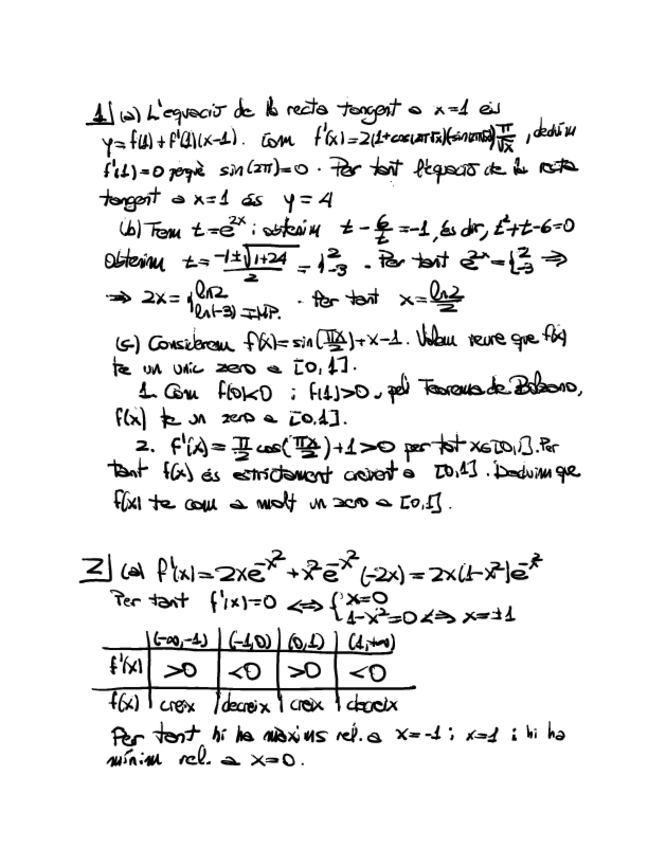 1| (a) L'equació de la recta tangent a x=1 és
y=f(1)+f'(1)(x-1). Com f'(x)=2(1+cos(2π√x))(-sin(2π√x))π/√x, deduïm
f'(1)=0 perquè sin(2π)=0. Per tant l'equació de la recta
tangent a x=1 és y=4
(b) Fem t=e^{2x} i obtenim t-6/t=-1, és dir, t²+t-6=0
Obtenim t=(-1±√(1+24))/2={2 -3. Per tant e^{2x}={2 -3 ⇒
⇒ 2x={ln2 ln(-3) IMP. Per tant x=ln2/2
(c) Considerem f(x)=sin(πx/2)+x-1. Volem veure que f(x)
te un unic zero a [0,1].
1. Com f(0)<0 i f(1)>0, pel Teorema de Bolzano,
f(x) te un zero a [0,1].
2. f'(x)=π/2 cos(πx/2)+1>0 per tot x∈[0,1]. Per
tant f(x) és estrictament creixent a [0,1]. Deduïm que
f(x) te com a molt un zero a [0,1].
2| (a) f'(x)=2xe^{-x²}+x²e^{-x²}(-2x)=2x(1-x²)e^{-x²}
Per tant f'(x)=0 ⇔ {x=0
1-x²=0 ⇔ x=±1
(-∞,-1) (-1,0) (0,1) (1,+∞)
f'(x) >0 <0 >0 <0
f(x) creix decreix creix decreix
Per tant hi ha màxims rel. a x=-1 i x=1 i hi ha
mínim rel. a x=0.